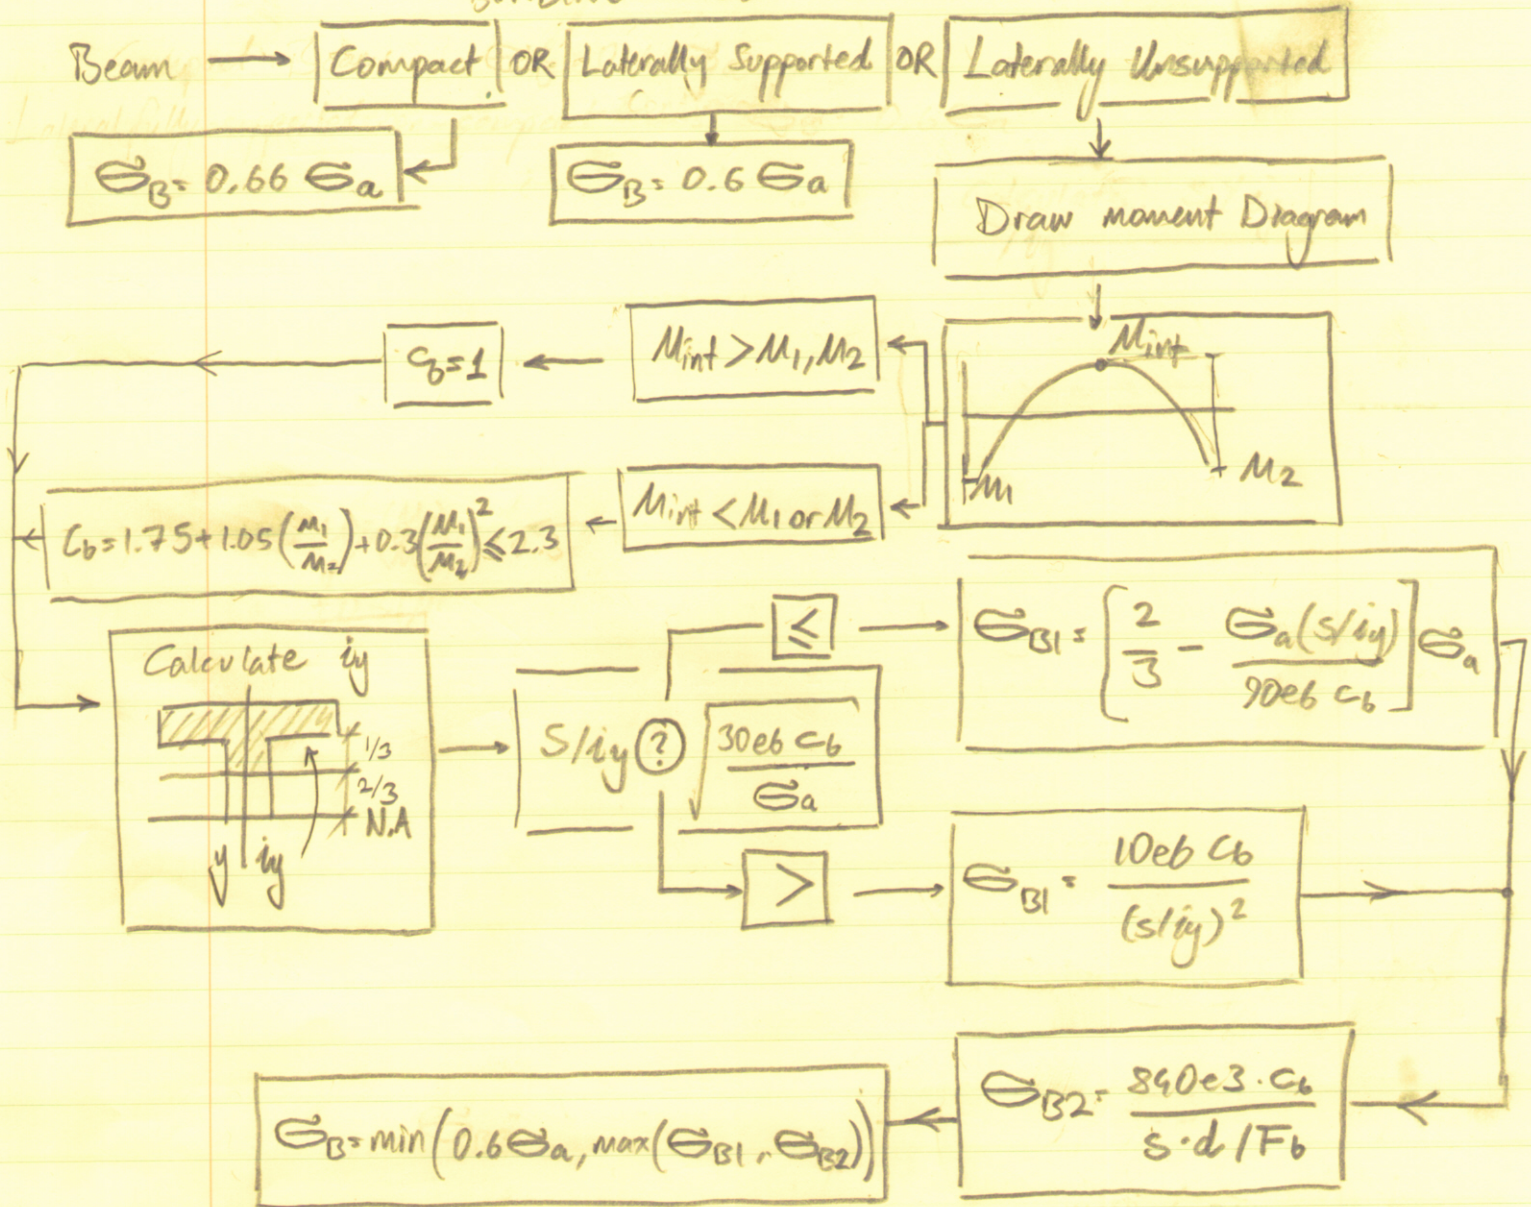 Beam → Compact OR Laterally Supported OR Laterally Unsupported
σB = 0.66 σa
σB = 0.6 σa
Draw moment Diagram
Mint
M1
M2
Mint > M1, M2
Cb = 1
Mint < M1 or M2
Cb = 1.75 + 1.05 (M1/M2) + 0.3 (M1/M2)² ≤ 2.3
Calculate iy
1/3
2/3
N.A
y iy
S/iy ? √(30e6 Cb / σa)
≤
σB1 = [2/3 - σa(s/iy)/90e6 Cb] σa
>
σB1 = 10e6 Cb / (s/iy)²
σB2 = 840e3 · Cb / s·d/Fb
σB = min(0.6σa, max(σB1, σB2))